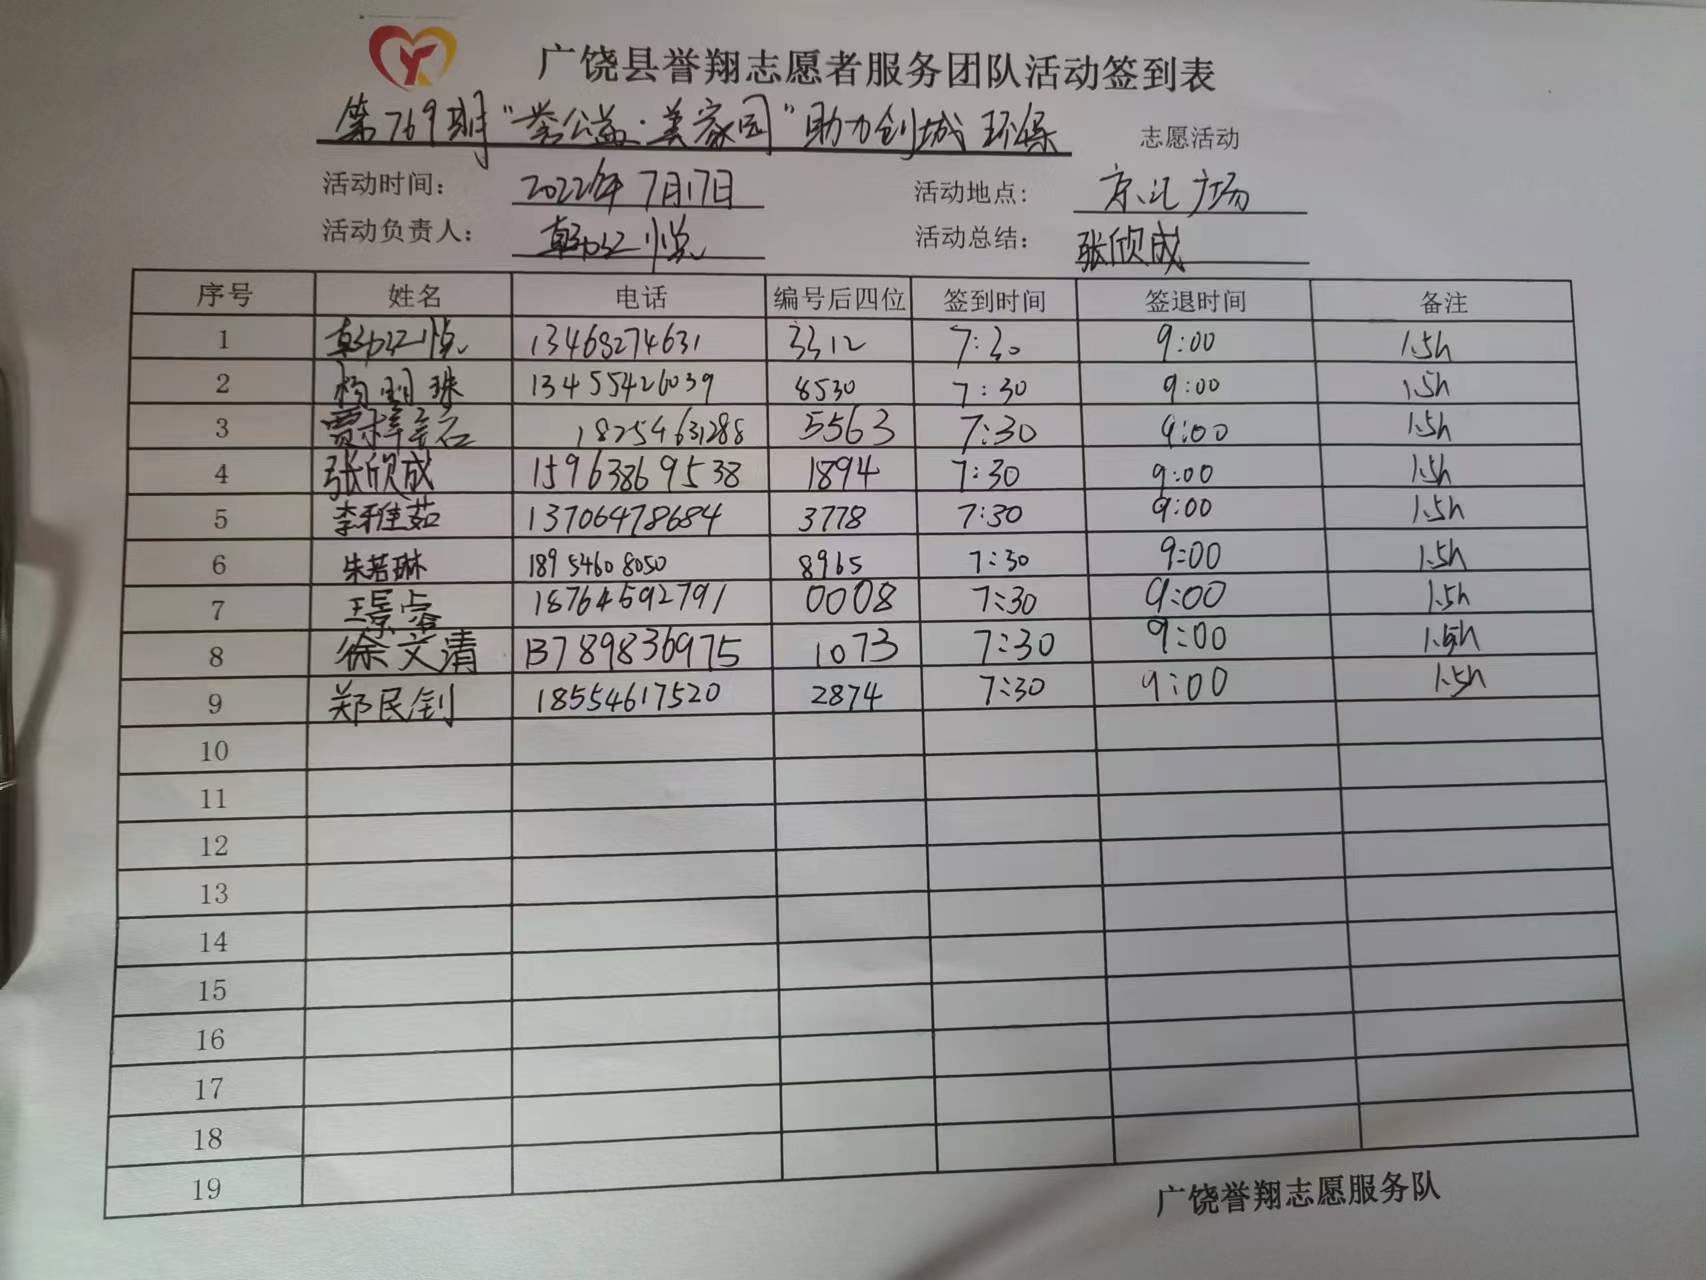 广饶县誉翔志愿者服务团队活动签到表
第769期“誉公益·美家园”助力创城环保 志愿活动
活动时间: 2022年7月17日 活动地点: 京汇广场
活动负责人: 活动总结: 张欣成
序号 姓名 电话 编号后四位 签到时间 签退时间 备注
1 13468274631 3312 7:30 9:00 1.5h
2 杨明珠 13455426039 8530 7:30 9:00 1.5h
3 贾梓 18254631288 5563 7:30 9:00 1.5h
4 张欣成 15963869538 1894 7:30 9:00 1.5h
5 李雅茹 13706478684 3778 7:30 9:00 1.5h
6 朱若琳 18954608050 8965 7:30 9:00 1.5h
7 王景睿 18764592791 0008 7:30 9:00 1.5h
8 徐文清 13789836975 1073 7:30 9:00 1.5h
9 郑民钊 18554617520 2874 7:30 9:00 1.5h
10
11
12
13
14
15
16
17
18
19
广饶誉翔志愿服务队